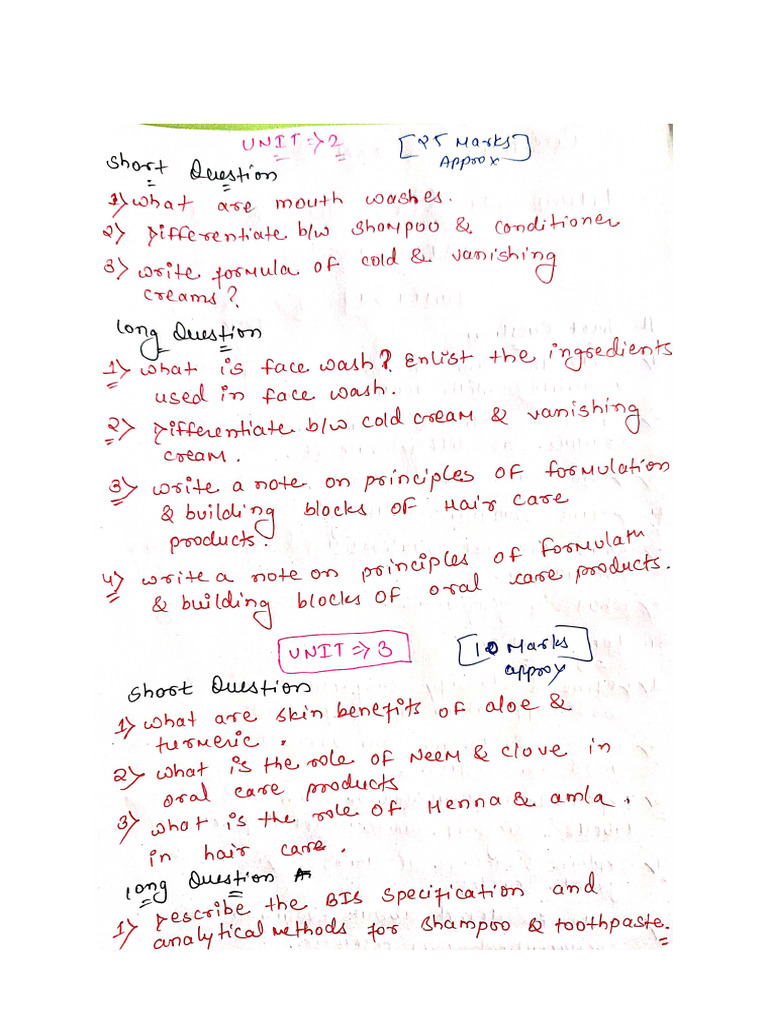 UNIT => 2 [25 Marks]
Approx
Short Question
1) What are mouth washes.
2) Differentiate b/w Shampoo & Conditioner
3) write formula of cold & vanishing
creams?
Long Question
1) What is face wash? Enlist the ingredients
used in face wash.
2) Differentiate b/w cold cream & vanishing
cream.
3) write a note on principles of formulation
& building blocks of Hair care
products.
4) write a note on principles of formulatn
& building blocks of oral care products.
UNIT => 3 [10 Marks]
approx
Short Question
1) What are skin benefits of aloe &
turmeric.
2) What is the role of Neem & clove in
oral care products
3) What is the role of Henna & amla.
in hair care.
Long Question
1) Describe the BIS specification and
analytical methods for shampoo & toothpaste.